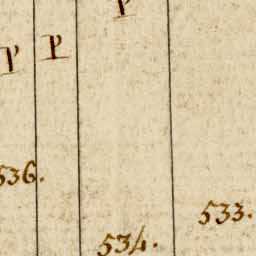 P
P P
536.
533.
534.